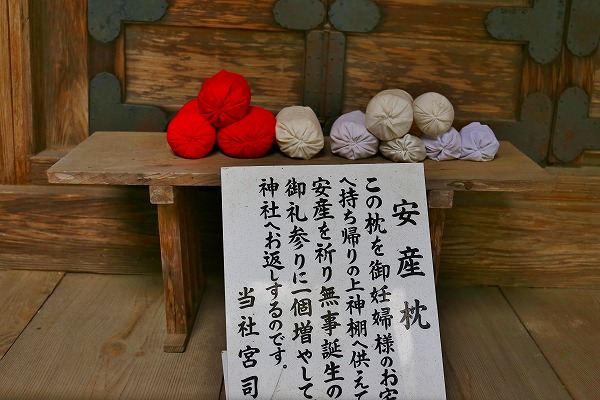 安産枕
この枕を御妊婦様のお宅
へ持ち帰りの上神棚へ供えて
安産を祈り無事誕生の
御礼参りに一個増やして
神社へお返しするのです。
当社宮司